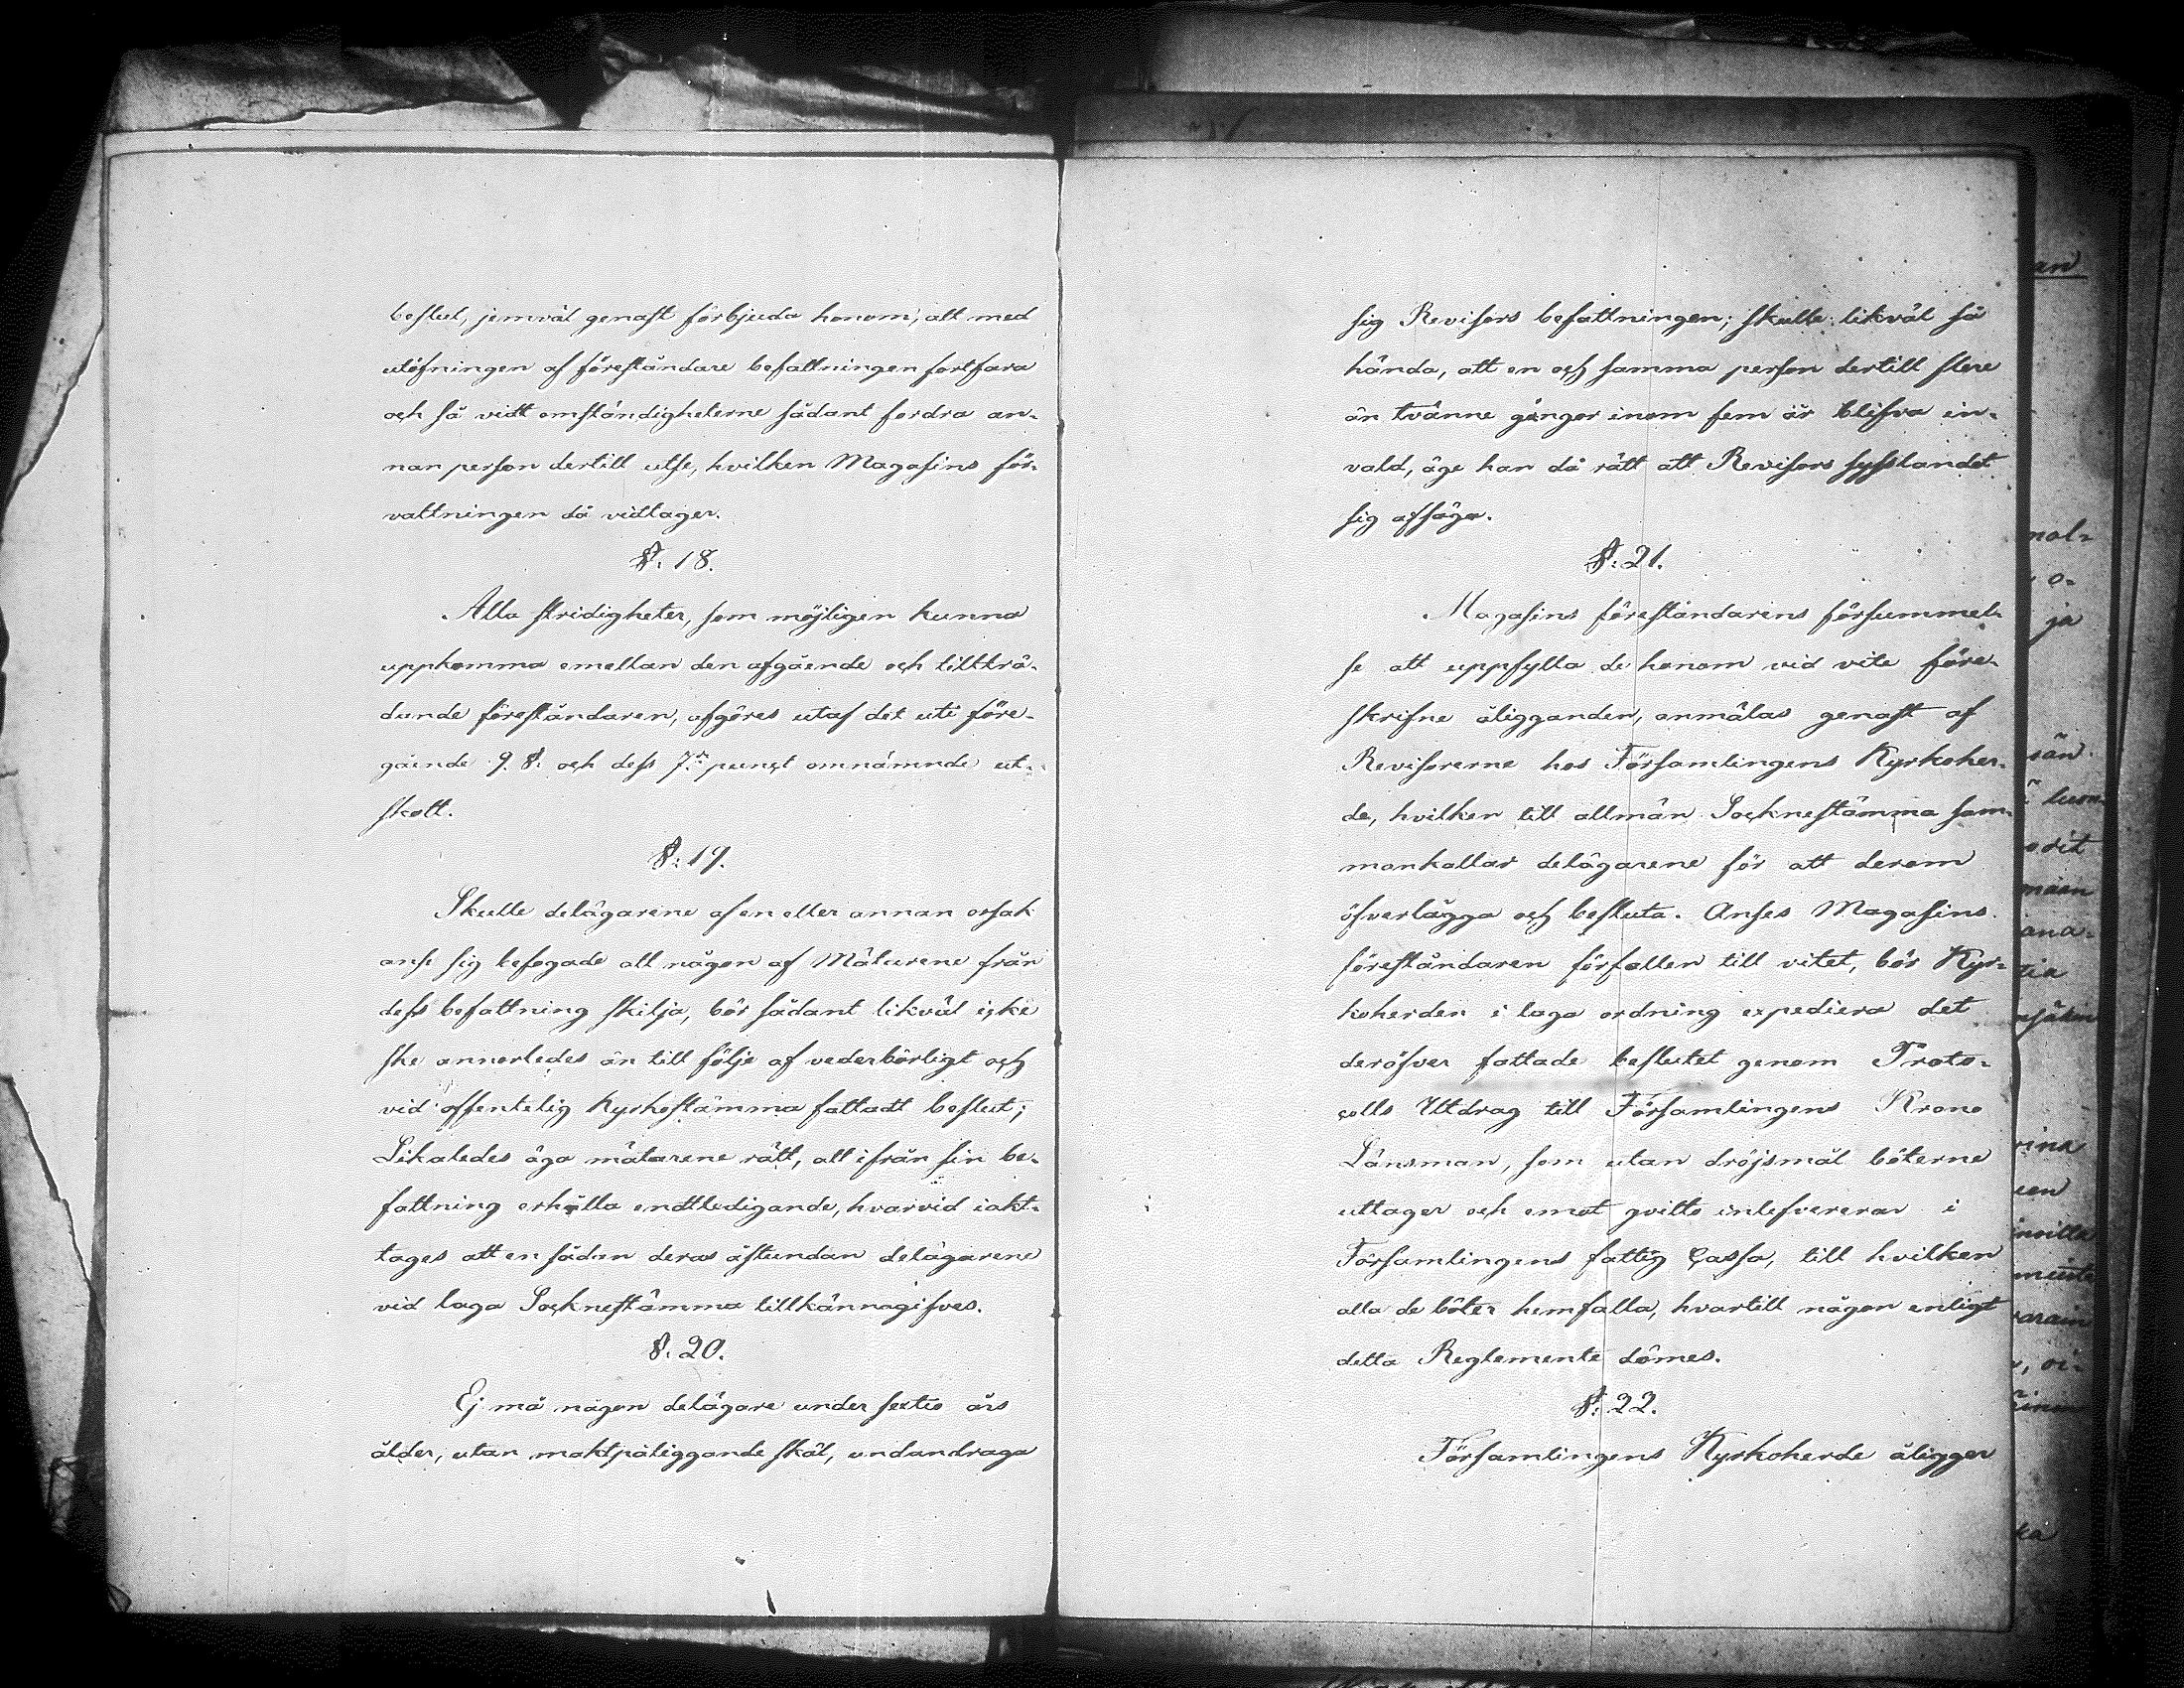 beslut, jemväl genast förbjuda honom, att med
utöfningen af föreståndare befattningen fortfara
och så vidt omständigheterne sådant fordra an-
nan person dertill utse, hvilken Magasins för-
valtningen då vidtager.
§. 18.
Alla stridigheter, som möjligen kunna
uppkomma emellan den afgående och tillträ-
dande föreståndaren, afgöres utaf det uti före-
gående 9. §. och dess 7:de punct omnämnde ut-
skott.
§. 19.
Skulle delägarene af en eller annan orsak
anse sig befogade att någon af Mätarene från
dess befattning skilja, bör sådant likväl icke
ske annorledes än till följe af vederbörligt och
vid offentelig Kyrkostämma fattadt beslut;
Likaledes äga mätarene rätt, att ifrån sin be-
fattning erhålla endtledigande, hvarvid iakt-
tages att en sådan deras åstundan delägarene
vid laga Socknestämma tillkännagifves.
§. 20.
Ej må någon delägare under sextio års
ålder, utan maktpåliggande skäl, undandraga
sig Revisors befattningen; skulle likväl så
hända, att en och samma person dertill flere
än tvänne gånger inom fem år blifva in-
vald, äge han då rätt att Revisors sysslandet
sig afsäga.
§. 21.
Magasins föreståndarens försummel-
se att uppfylla de honom vid vite före-
skrifne åligganden, anmälas genast af
Revisorerne hos Församlingens Kyrkoher-
de, hvilken till allmän Socknestämma sam-
mankallar delägarene för att derom
öfverlägga och besluta. Anses Magasins
föreståndaren förfallen till vitet, bör Kyr-
koherden i laga ordning expediera det
deröfver fattade beslutet genom Proto-
colls Utdrag till Församlingens Krono
Länsman, som utan dröjsmål böterne
uttager och emot qvitto inlefvererar i
Församlingens fattig Cassa, till hvilken
alla de böter hemfalla, hvartill någon enligt
detta Reglemente dömes.
§. 22.
Församlingens Kyrkoherde åligger